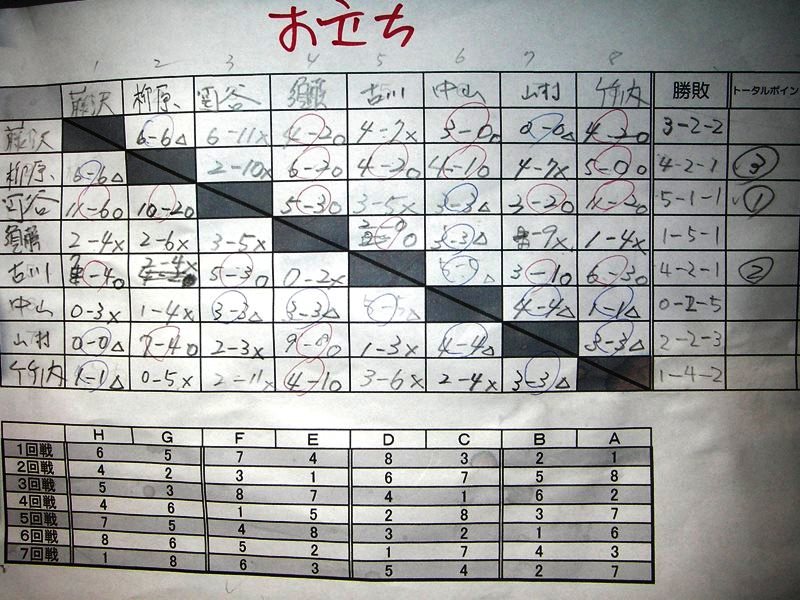 お立ち
1 2 3 4 5 6 7 8
藤沢 柳原 古川 中山 山村 竹内 勝敗 トータルポイン
藤沢 6-6△ 6-11× 4-2○ 4-7× 3-0○ 0-0△ 4-2○ 3-2-2
柳原 6-6△ 2-10× 4-1○ 4-7× 5-0○ 4-2-1 ③
11-6○ 10-2○ 5-3○ 3-5× 3-3△ 3-2○ 11-2○ 5-1-1 ①
2-4× 2-6× 3-5× 3-3△ -9× 1-4× 1-5-1
古川 -4○ 2-4× 5-3○ 0-2× 3-1○ 6-3○ 4-2-1 ②
中山 0-3× 1-4× 3-3△ 3-3△ 4-4△ 1-1△
山村 0-0△ 7-4○ 2-3× 1-3× 4-4△ 3-3△ 2-2-3
竹内 1-1△ 0-5× 2-11× 4-1○ 3-6× 2-4× 3-3△ 1-4-2
H G F E D C B A
1回戦 6 5 7 4 8 3 2 1
2回戦 4 2 3 1 6 7 5 8
3回戦 5 3 8 7 4 1 6 2
4回戦 4 6 1 5 2 8 3 7
5回戦 7 5 4 8 3 2 1 6
6回戦 8 6 5 2 1 7 4 3
7回戦 1 8 6 3 5 4 2 7